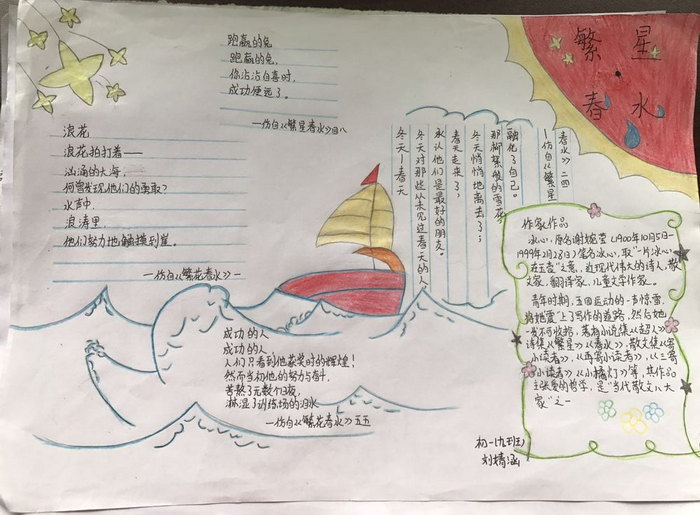 繁 星
·
春 水
跑赢的兔
跑赢的兔,
你沾沾自喜时,
成功便远了。
—仿自《繁星春水》自八
浪花
浪花拍打着——
汹涌的大海,
何曾发现他们的勇敢?
水声中,
浪涛里,
他们努力地触摸到崖。
—仿自《繁花春水》一
春水》二四
—仿自《繁星
融化了自己。
那脚紧敏的雪花
冬天悄悄地离去了;
春天走来了,
承认他们是最好的朋友。
冬天对那些从未见过春天的人
冬天—春天
成功的人
成功的人
人们只看到他获奖时的辉煌!
然而当初他的努力与奋斗
苦熬了无数个夜,
淋湿了训练场的泪水
—仿自《繁花春水》五五
作家作品
冰心,原名谢婉莹(1900年10月5日-
1999年2月28日)笔名冰心,取“一片冰心
在玉壶”之意,近现代伟大的诗人,散
文家,翻译家,儿童文学作家。
青年时期,五四运动的一声惊雷,
将她震”上了写作的道路,然后她
一发不可收拾,著有小说集《超人》
诗集《繁星》《春水》,散文集《寄
小读者》,《再寄小读者》,《三寄
小读者》《小橘灯》等,其作品
主张爱的哲学,是“当代散文八大
家”之一
初一(9)班
刘婧涵